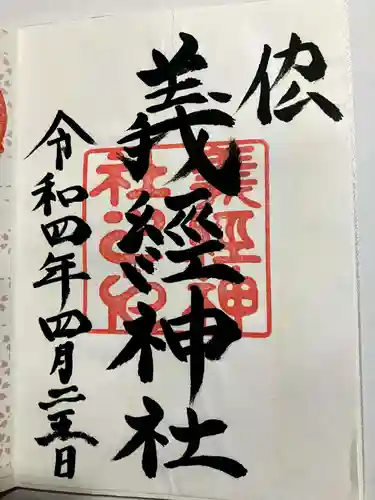 佱
義經神社
令和四年四月二五日
義經神
社之印